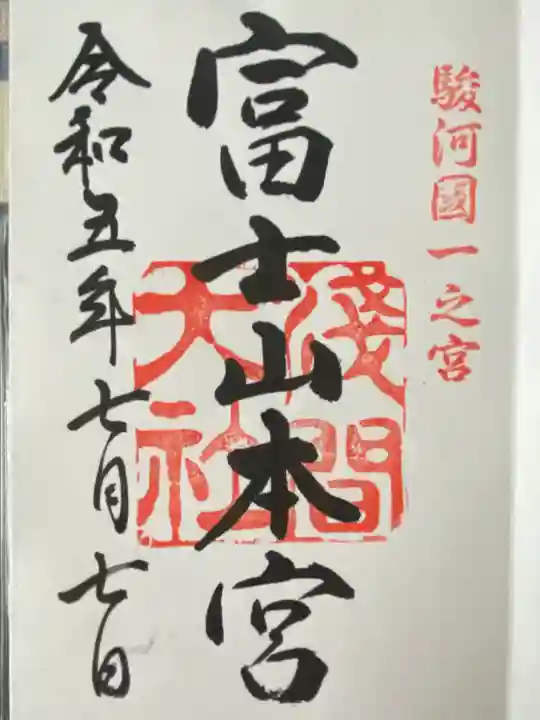 駿河國一之宮
富士山本宮
淺間
大社
令和五年七月七日